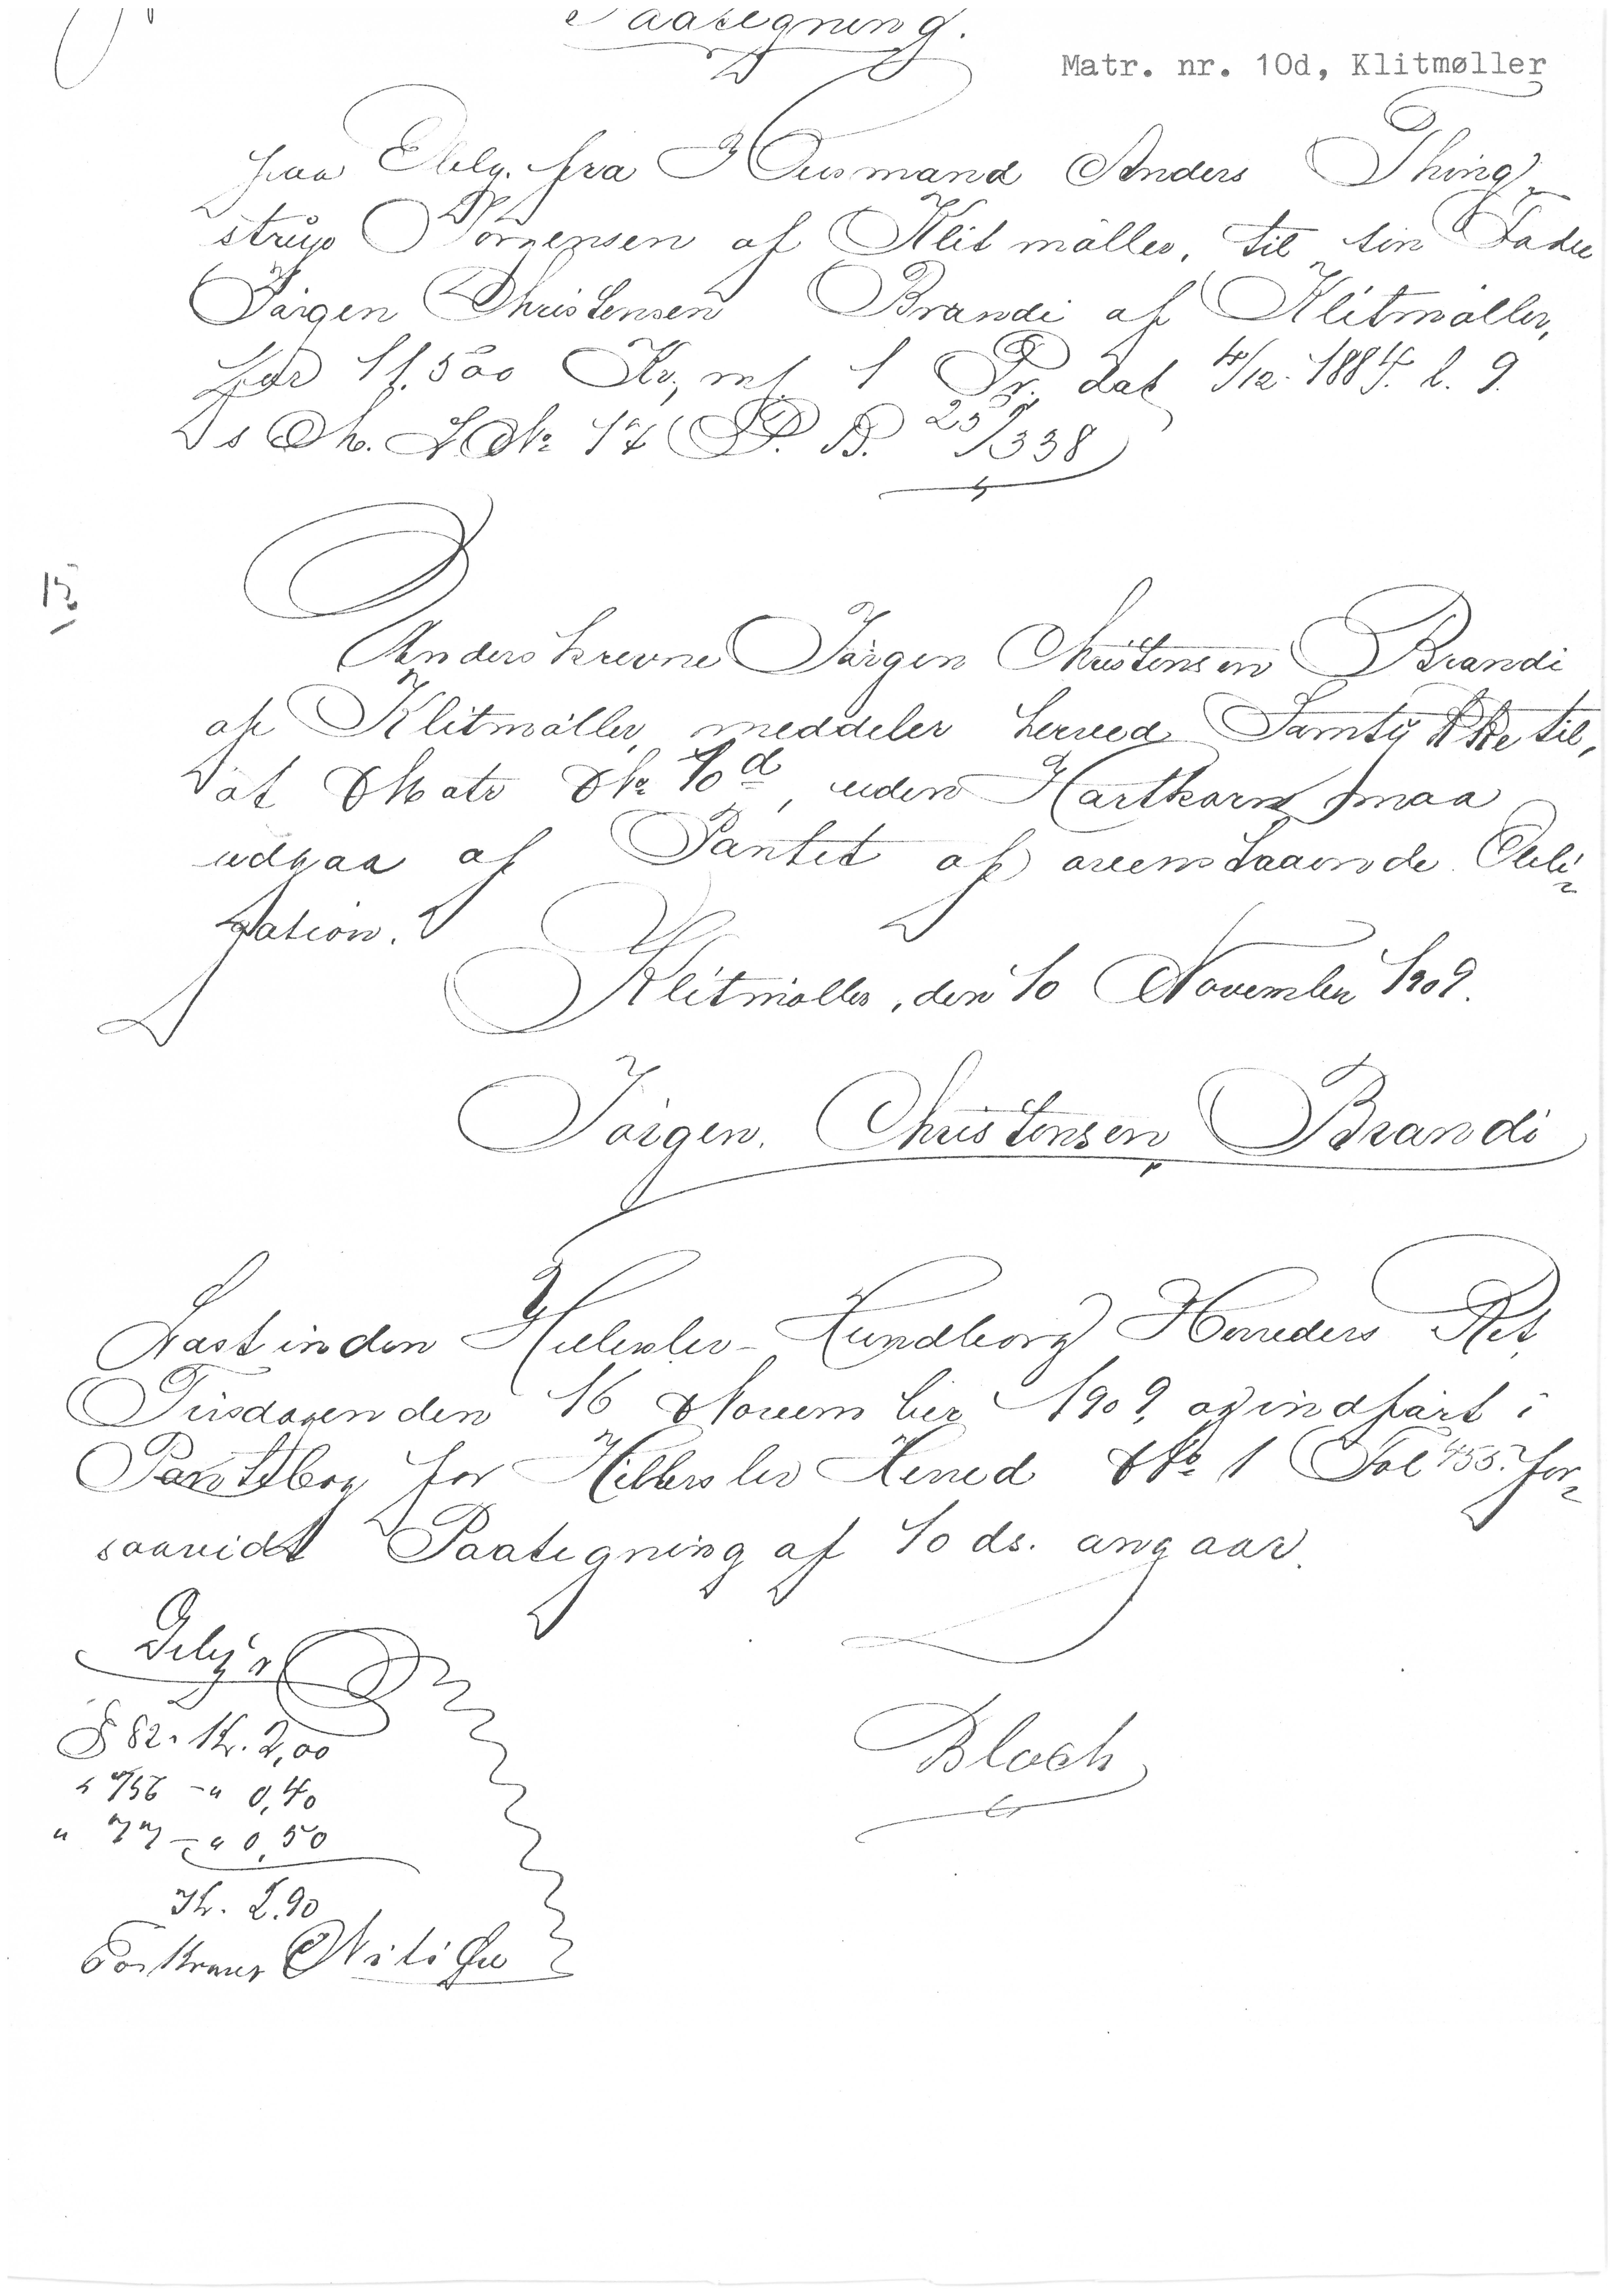 Paategning.
Matr. nr. 10d, Klitmøller
paa Oblg. fra Husmand Anders Thing-
strup Sørensen af Klitmøller, til sin Fader
Jørgen Christensen Brandi af Klitmøller,
for Kr, mf 1 Pr. dat 4/12. 1884. l. 9.
No 17 P. B. 25/338
15
Underskrevne Jørgen Christensen Brandi
af Klitmøller, meddeler herved Samtykke til,
at Matr No 10d, uden Hartkorn, maa
udgaa af Pantet af ovenstaaende Obli-
gation.
Klitmøller, den 10 November 1909.
Jørgen. Christensen Brandi
Læst inden Hillerslev-Hundborg Herreders Ret
Tirsdagen den 16 November 1909, og indført i
Pantebog for Hillerslev Herred No 1 Fol 455. for-
saavidt Paategning af 10 ds. angaar.
Bloch
§ 82. Kr. 2,00
" 0,40
" 77 - " 0,50
Kr. 2.90